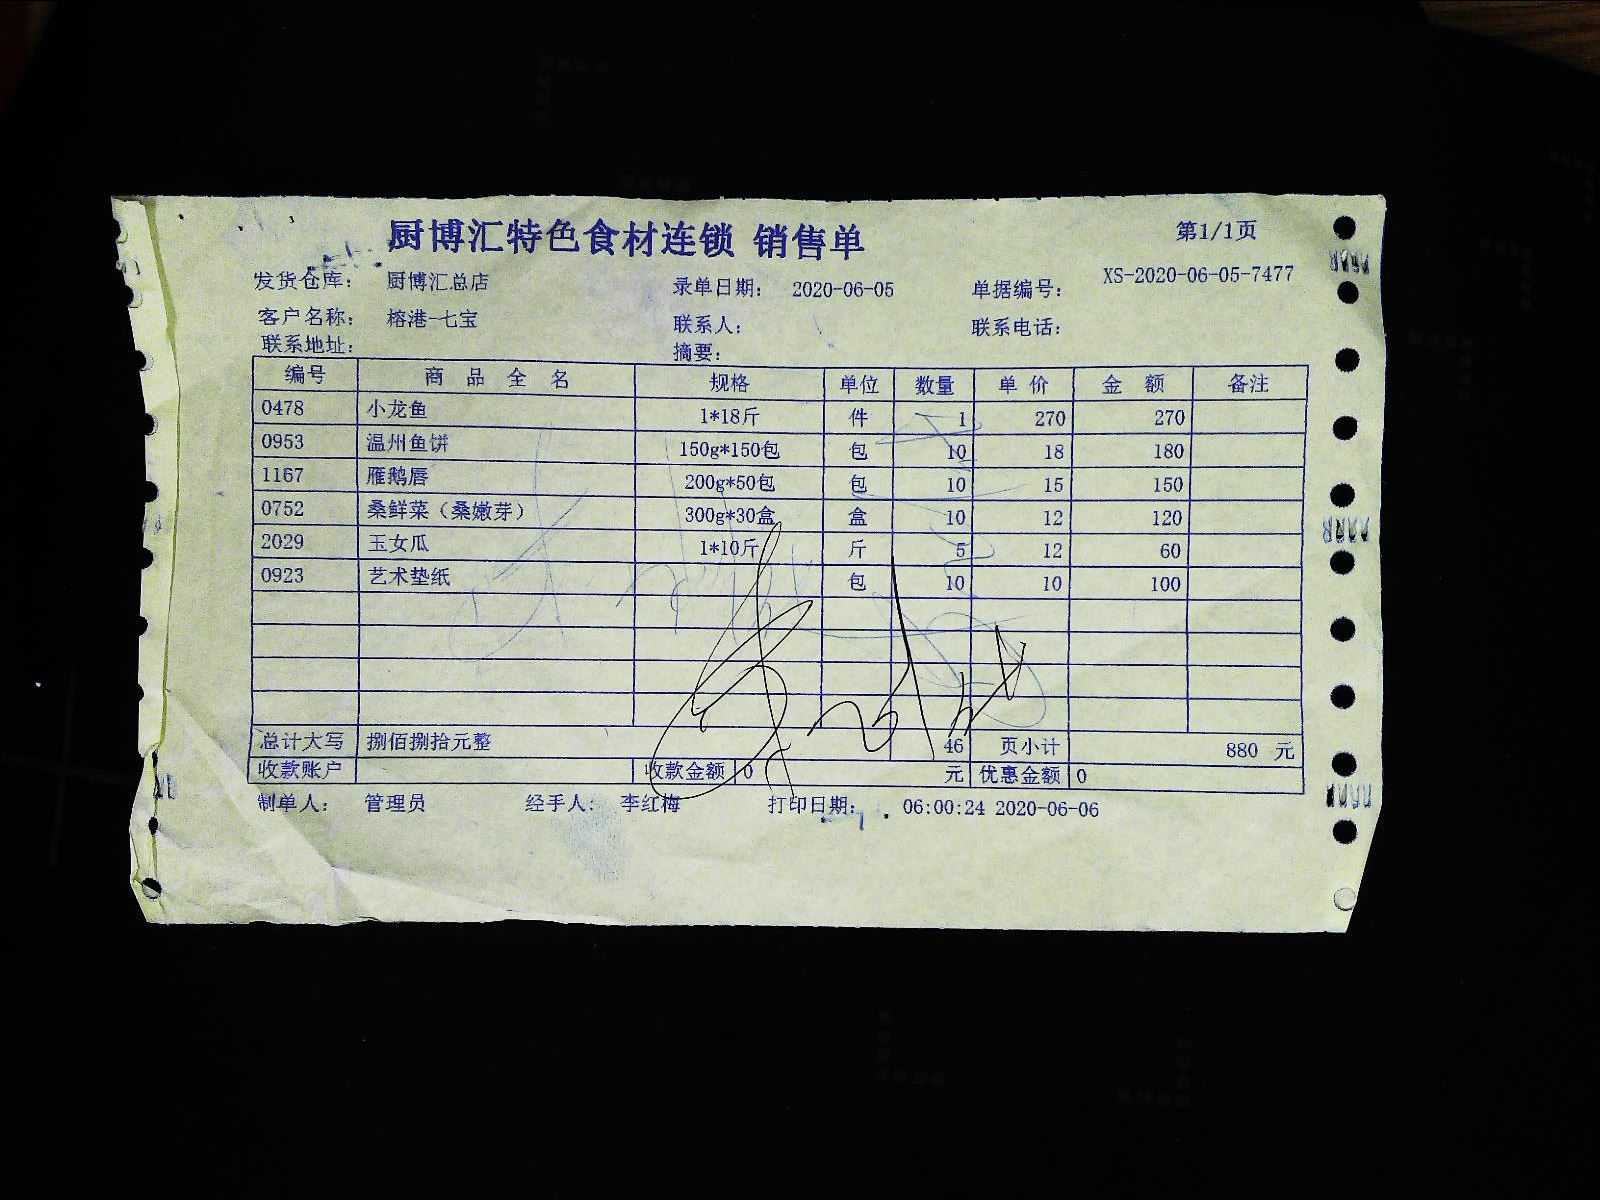 厨博汇特色食材连锁 销售单 第1/1页
发货仓库: 厨博汇总店 录单日期: 2020-06-05 单据编号: XS-2020-06-05-7477
客户名称: 榕港-七宝 联系人: 联系电话:
联系地址: 摘要:
编号 商品全名 规格 单位 数量 单价 金额 备注
0478 小龙鱼 1*18斤 件 1 270 270
0953 温州鱼饼 150g*150包 包 10 18 180
1167 雁鹅唇 200g*50包 包 10 15 150
0752 桑鲜菜（桑嫩芽） 300g*30盒 盒 10 12 120
2029 玉女瓜 1*10斤 斤 5 12 60
0923 艺术垫纸 包 10 10 100
总计大写 捌佰捌拾元整 46 页小计 880 元
收款账户 收款金额 0 元 优惠金额 0
制单人: 管理员 经手人: 李红梅 打印日期: 06:00:24 2020-06-06